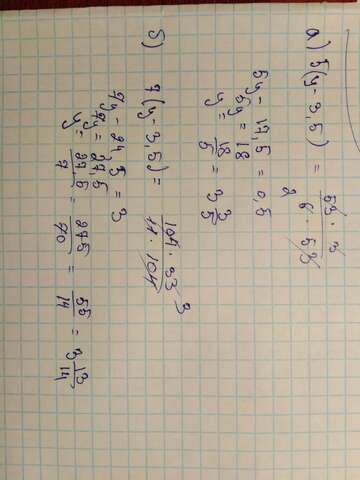 а) 5(y-3,5) = 53·3 / 6·53 2
5y-17,5=0,5
5y=18
y= 18/5 = 3 3/5
б) 7(y-3,5)= 107·33 3 / 11·107
7y-24,5=3
7y=27,5
y= 27,5/7 = 275/70 = 55/14 = 3 13/14